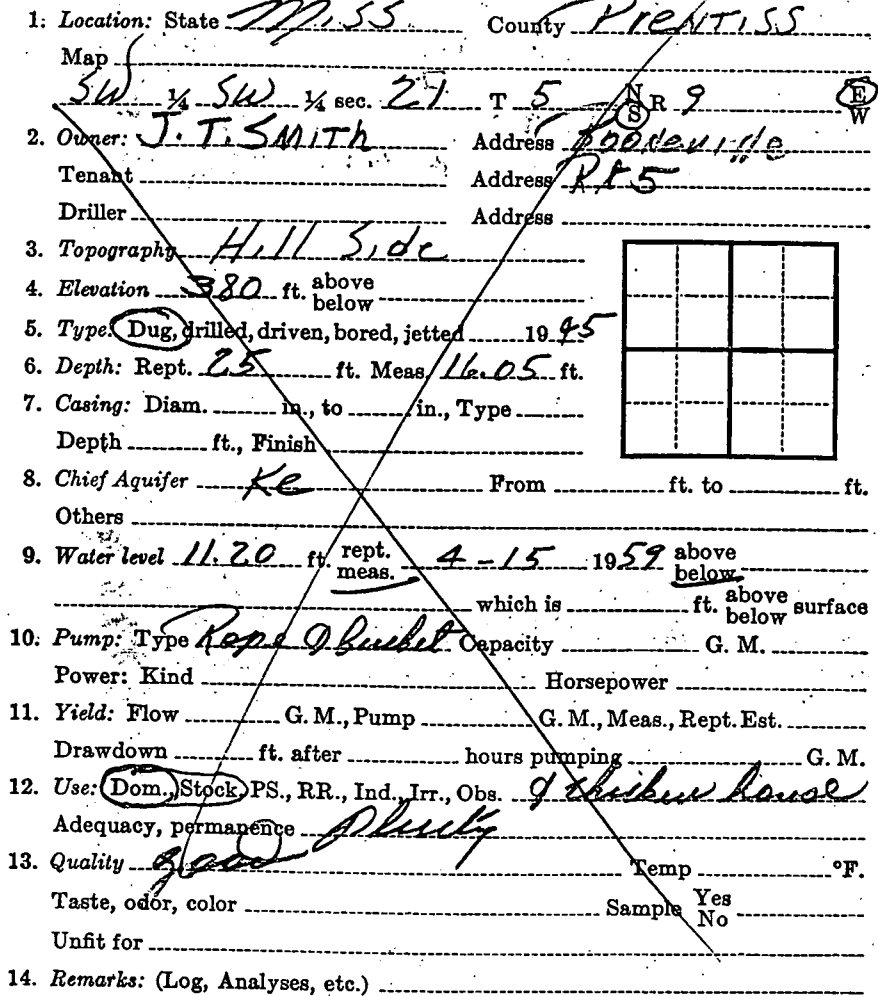 1. Location: State Miss County Prentiss
Map
SW ¼ SW ¼ sec. 21 T 5 N S R 9 E W
2. Owner: J. T. SMITH Address Booneville
Tenant Address Rt 5
Driller Address
3. Topography Hill Side
4. Elevation 380 ft. above below
5. Type: Dug, drilled, driven, bored, jetted 1945
6. Depth: Rept. 25 ft. Meas. 16.05 ft.
7. Casing: Diam. in., to in., Type
Depth ft., Finish
8. Chief Aquifer Ke From ft. to ft.
Others
9. Water level 11.20 ft. rept. meas. 4-15 1959 above below
which is ft. above below surface
10. Pump: Type Rope & bucket Capacity G. M.
Power: Kind Horsepower
11. Yield: Flow G. M., Pump G. M., Meas., Rept. Est.
Drawdown ft. after hours pumping G. M.
12. Use: Dom., Stock, PS., RR., Ind., Irr., Obs. & chicken house
Adequacy, permanence Plenty
13. Quality good Temp °F.
Taste, odor, color Sample Yes No
Unfit for
14. Remarks: (Log, Analyses, etc.)